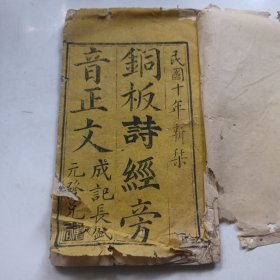 民國十年新柒
銅板詩經旁
音正文
成記長
元